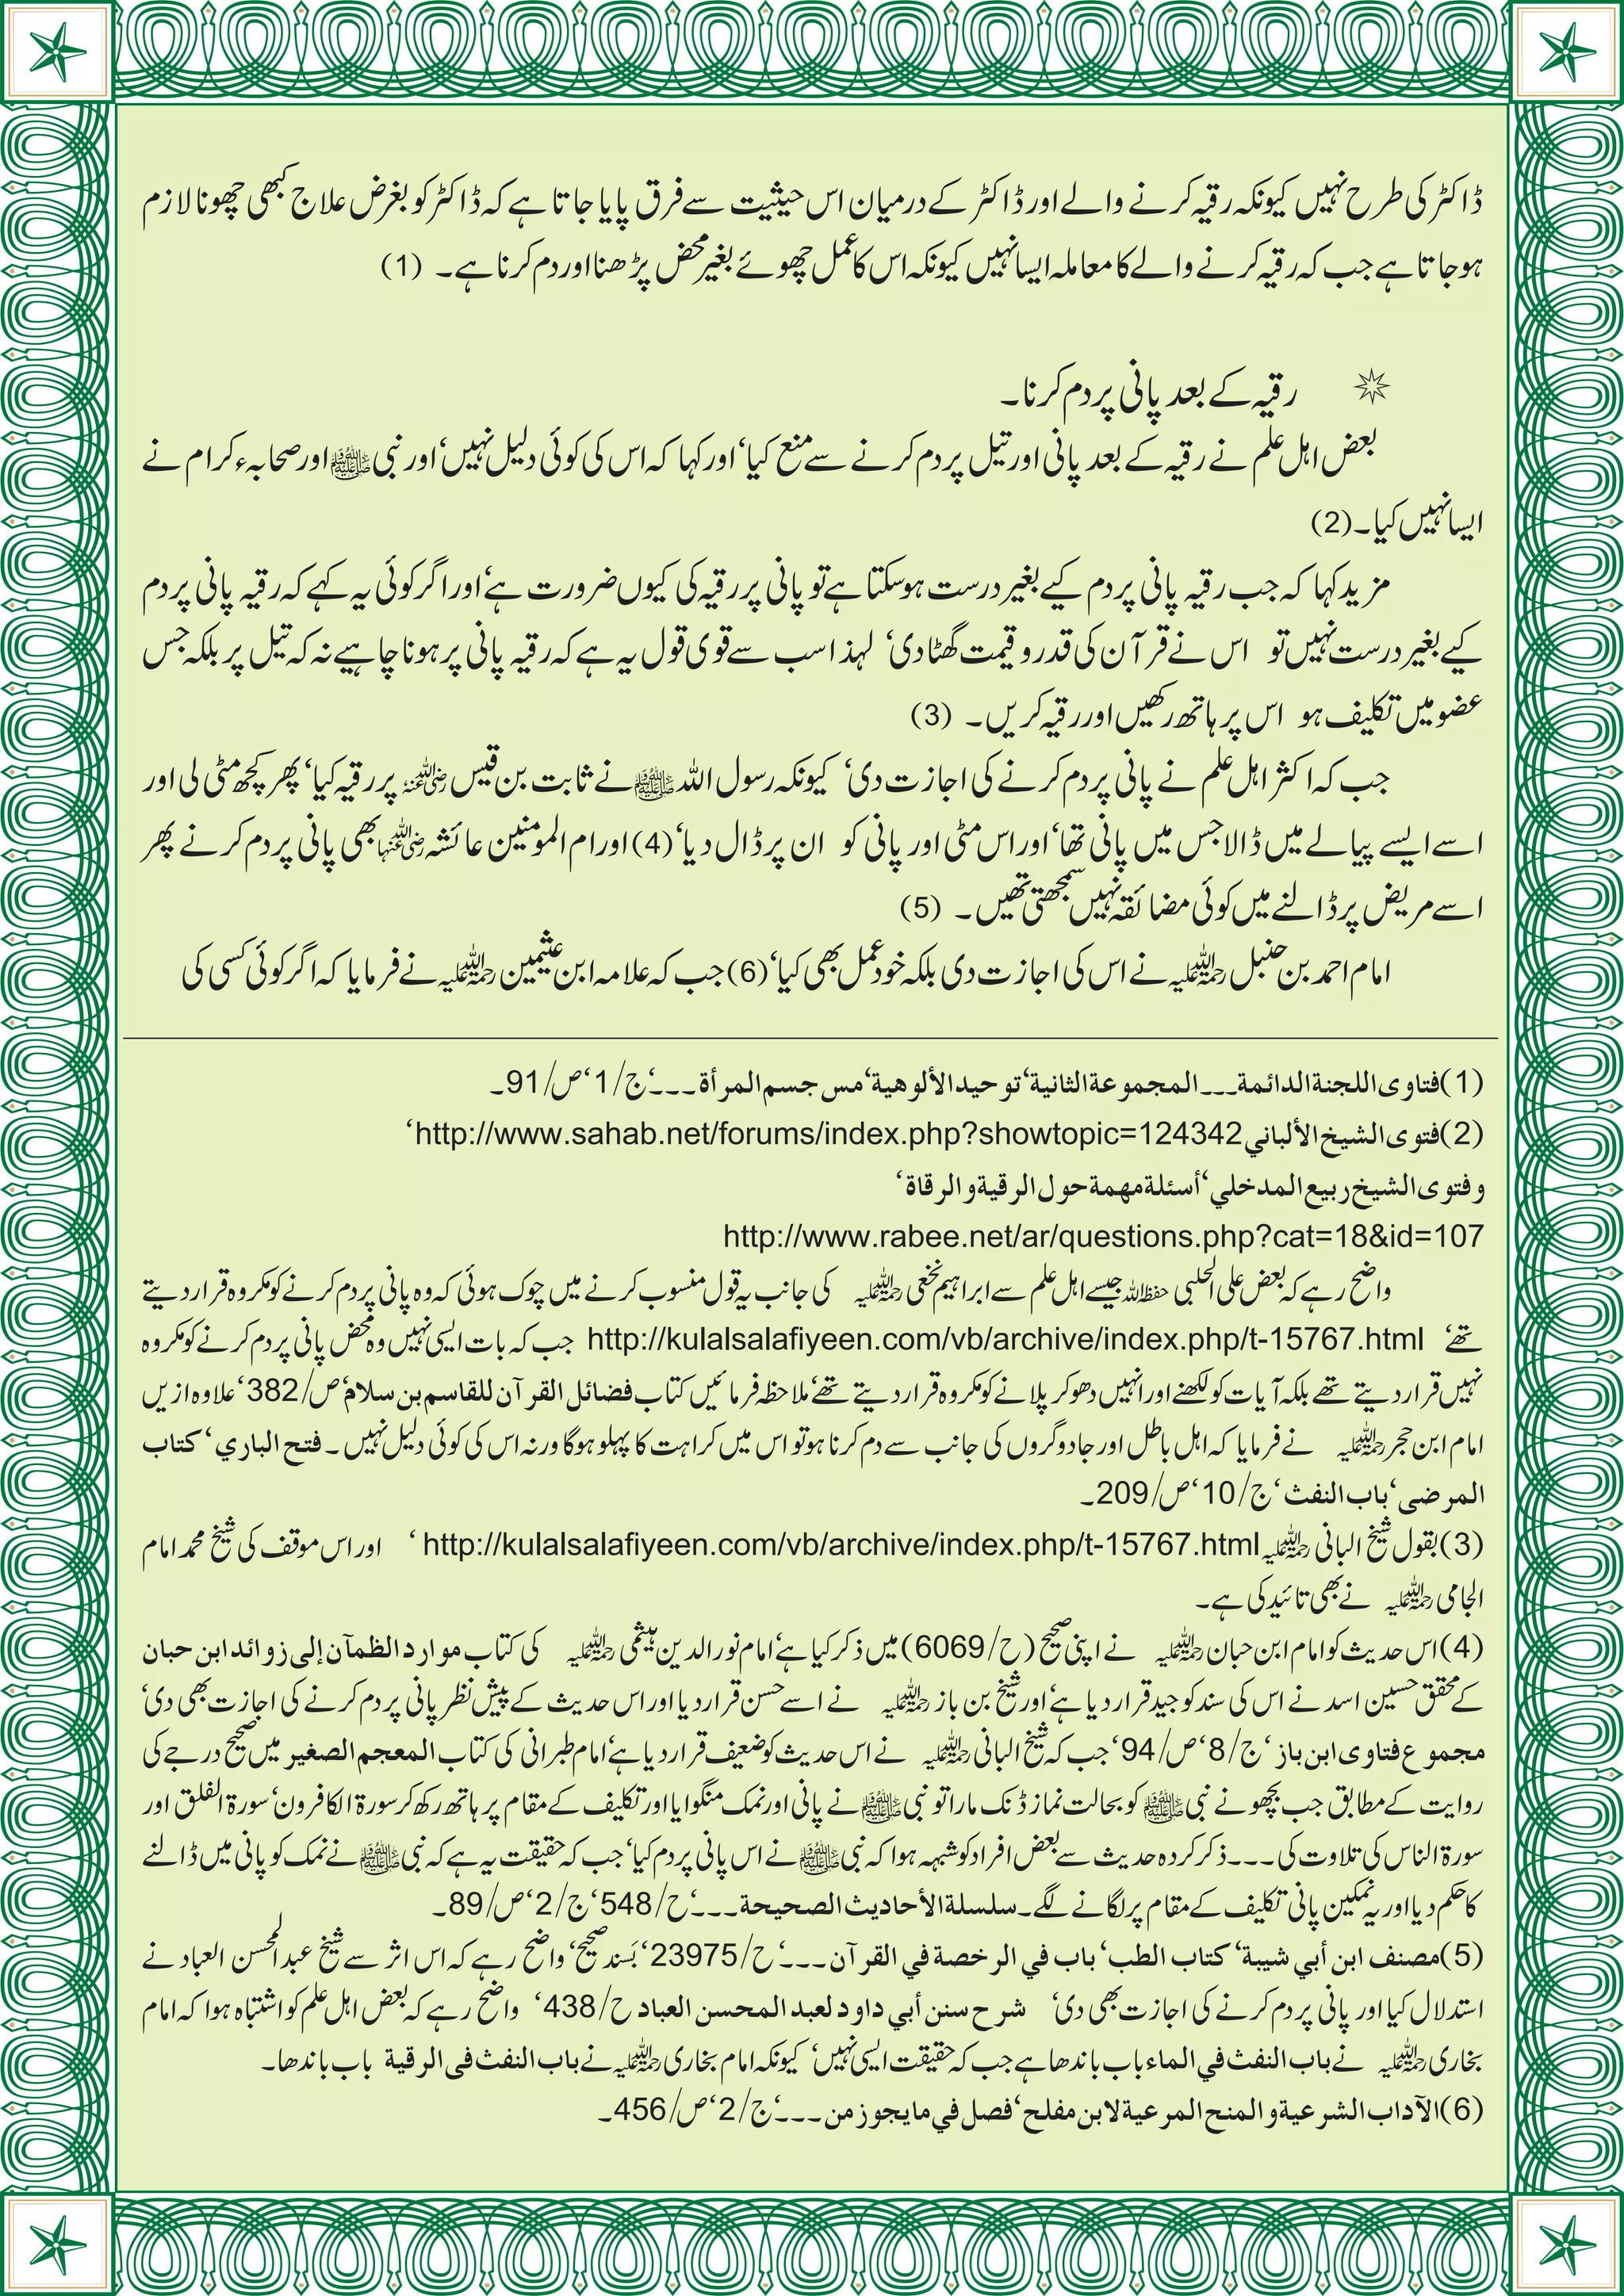 ڈاکٹر کی طرح نہیں کیونکہ رقیہ کرنے والے اور ڈاکٹر کے درمیان اس حیثیت سے فرق پایا جاتا ہے کہ ڈاکٹر کو بغرض علاج کبھی چھونا لازم
ہوجاتا ہے جب کہ رقیہ کرنے والے کا معاملہ ایسا نہیں کیونکہ اس کا عمل چھوئے بغیر محض پڑھنا اور دم کرنا ہے۔ (1)
رقیہ کے بعد پانی پر دم کرنا۔
بعض اہل علم نے رقیہ کے بعد پانی اور تیل پر دم کرنے سے منع کیا‘ اور کہا کہ اس کی کوئی دلیل نہیں‘ اور نبی ﷺ اور صحابہء کرام نے
ایسا نہیں کیا۔(2)
مزید کہا کہ جب رقیہ پانی پر دم کیے بغیر درست ہوسکتا ہے تو پانی پر رقیہ کی کیوں ضرورت ہے‘ اور اگر کوئی یہ کہے کہ رقیہ پانی پر دم
کیے بغیر درست نہیں تو اس نے قرآن کی قدر و قیمت گھٹا دی‘ لہذا سب سے قوی قول یہ ہے کہ رقیہ پانی پر ہونا چاہیے نہ کہ تیل پر بلکہ جس
عضو میں تکلیف ہو اس پر ہاتھ رکھیں اور رقیہ کریں۔ (3)
جب کہ اکثر اہل علم نے پانی پر دم کرنے کی اجازت دی‘ کیونکہ رسول اللہ ﷺ نے ثابت بن قیس رضی اللہ عنہ پر رقیہ کیا‘ پھر کچھ مٹی لی اور
اسے ایسے پیالے میں ڈالا جس میں پانی تھا‘ اور اس مٹی اور پانی کو ان پر ڈال دیا‘ (4) اور ام المومنین عائشہ رضی اللہ عنہا بھی پانی پر دم کرنے پھر
اسے مریض پر ڈالنے میں کوئی مضائقہ نہیں سمجھتی تھیں۔ (5)
امام احمد بن حنبل رحمۃ اللہ علیہ نے اس کی اجازت دی بلکہ خود عمل بھی کیا‘ (6) جب کہ علامہ ابن عثیمین رحمۃ اللہ علیہ نے فرمایا کہ اگر کوئی کسی کی
(1) فتاوی اللجنة الدائمة۔۔۔ المجموعة الثانیة‘ توحید الألوهیة‘ مس جسم المرأة۔۔۔‘ ج/1‘ ص/91۔
(2) فتوی الشیخ الألباني http://www.sahab.net/forums/index.php?showtopic=124342‘
وفتوی الشیخ ربیع المدخلي‘ أسئلة مهمة حول الرقیة والرقاة‘
http://www.rabee.net/ar/questions.php?cat=18&id=107
واضح رہے کہ بعض علی الحلبی حفظہ اللہ جیسے اہل علم سے ابراہیم نخعی رحمۃ اللہ علیہ کی جانب یہ قول منسوب کرنے میں چوک ہوئی کہ وہ پانی پر دم کرنے کو مکروہ قرار دیتے
تھے‘ http://kulalsalafiyeen.com/vb/archive/index.php/t-15767.html جب کہ بات ایسی نہیں وہ محض پانی پر دم کرنے کو مکروہ
نہیں قرار دیتے تھے بلکہ آیات کو لکھنے اور انہیں دھو کر پلانے کو مکروہ قرار دیتے تھے‘ ملاحظہ فرمائیں کتاب فضائل القرآن للقاسم بن سلام‘ ص/382‘ علاوہ ازیں
امام ابن حجر رحمۃ اللہ علیہ نے فرمایا کہ اہل باطل اور جادوگروں کی جانب سے دم کرنا ہو تو اس میں کراہت کا پہلو ہوگا ورنہ اس کی کوئی دلیل نہیں۔ فتح الباري‘ کتاب
المرضی‘ باب النفث‘ ج/10‘ ص/209۔
(3) بقول شیخ البانی رحمۃ اللہ علیہ http://kulalsalafiyeen.com/vb/archive/index.php/t-15767.html‘ اور اس موقف کی شیخ محمد امام
الجامی رحمۃ اللہ علیہ نے بھی تائید کی ہے۔
(4) اس حدیث کو امام ابن حبان رحمۃ اللہ علیہ نے اپنی صحیح (ح/6069) میں ذکر کیا ہے‘ امام نور الدین ہیثمی رحمۃ اللہ علیہ کی کتاب موارد الظمآن إلی زوائد ابن حبان
کے محقق حسین اسد نے اس کی سند کو جید قرار دیا ہے‘ اور شیخ بن باز رحمۃ اللہ علیہ نے اسے حسن قرار دیا اور اس حدیث کے پیش نظر پانی پر دم کرنے کی اجازت بھی دی‘
مجموع فتاوی ابن باز‘ ج/8‘ ص/94‘ جب کہ شیخ البانی رحمۃ اللہ علیہ نے اس حدیث کو ضعیف قرار دیا ہے‘ امام طبرانی کی کتاب المعجم الصغیر میں صحیح درجے کی
روایت کے مطابق جب بچھو نے نبی ﷺ کو بحالت نماز ڈنک مارا تو نبی ﷺ نے پانی اور نمک منگوایا اور تکلیف کے مقام پر ہاتھ رکھ کر سورۃ الکافرون‘ سورۃ الفلق اور
سورۃ الناس کی تلاوت کی۔۔۔ ذکر کردہ حدیث سے بعض افراد کو شبہہ ہوا کہ نبی ﷺ نے اس پانی پر دم کیا‘ جب کہ حقیقت یہ ہے کہ نبی ﷺ نے نمک کو پانی میں ڈالنے
کا حکم دیا اور یہ نمکین پانی تکلیف کے مقام پر لگانے لگے۔ سلسلة الأحادیث الصحیحة۔۔۔‘ ح/548‘ ج/2‘ ص/89۔
(5) مصنف ابن أبي شیبة‘ کتاب الطب‘ باب في الرخصة في القرآن۔۔۔‘ ح/23975‘ بَسند صحیح‘ واضح رہے کہ اس اثر سے شیخ عبد المحسن العباد نے
استدلال کیا اور پانی پر دم کرنے کی اجازت بھی دی‘ شرح سنن أبي داود لعبد المحسن العباد ح/438‘ واضح رہے کہ بعض اہل علم کو اشتباہ ہوا کہ امام
بخاری رحمۃ اللہ علیہ نے باب النفث في الماء باب باندھا ہے جب کہ حقیقت ایسی نہیں‘ کیونکہ امام بخاری رحمۃ اللہ علیہ نے باب النفث فی الرقیة باب باندھا۔
(6) الآداب الشرعیة والمنح المرعیة لابن مفلح‘ فصل في مایجوز من۔۔۔‘ ج/2‘ ص/456۔